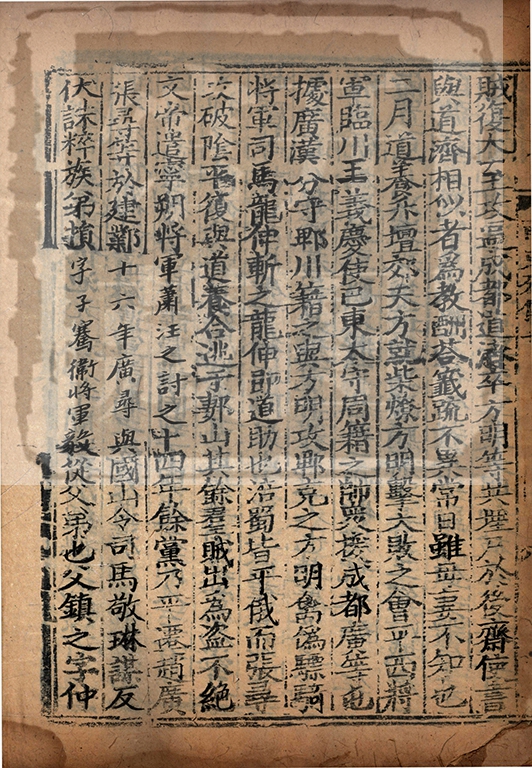 賊復大至攻逼成都道濟卒方明等共埋尸於後齋使書
與道濟相似者為教酬荅籖疏不異常日雖母妻不知也
二月道養升壇郊天方就柴燎方明擊大敗之會平西將
軍臨川王義慶使巴東太守周籍之帥衆援成都廣等屯
據廣漢分守郫川籍之與方明攻郫克之方明禽偽驃騎
將軍司馬龍伸斬之龍伸即道助也涪蜀皆平俄而張尋
攻破陰平復與道養合逃于郪山其餘羣賊出為盗不絶
文帝遣寧朔將軍蕭汪之討之十四年餘黨乃平遷趙廣
張尋等於建鄴十六年廣尋與國山令司馬敬琳謀反
伏誅粹族弟損字子騫衛將軍毅從父弟也父鎮之字仲